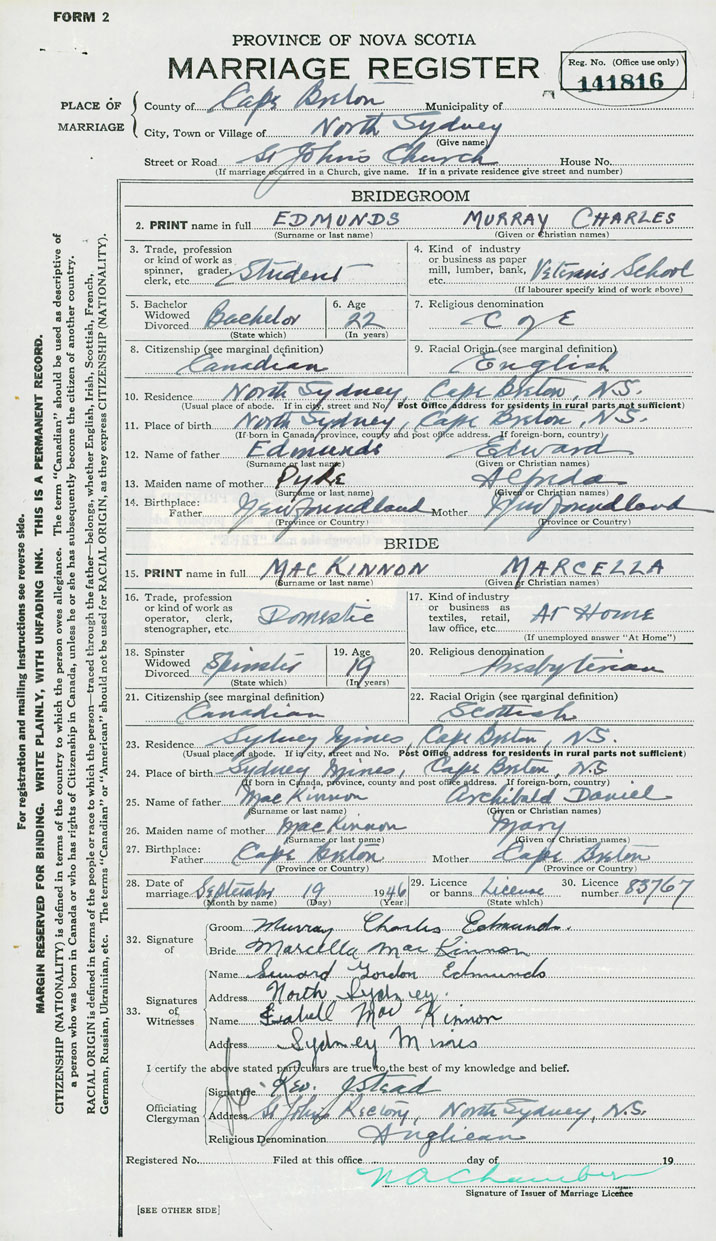 FORM 2
PROVINCE OF NOVA SCOTIA
MARRIAGE REGISTER
Reg. No. (Office use only)
141816
PLACE OF MARRIAGE
County of Cape Breton Municipality of
City, Town or Village of North Sydney
(Give name)
Street or Road St John's Church House No.
(If marriage occurred in a Church, give name. If in a private residence give street and number)
BRIDEGROOM
2. PRINT name in full EDMUNDS MURRAY CHARLES
(Surname or last name) (Given or Christian names)
3. Trade, profession or kind of work as spinner, grader, clerk, etc. Student
4. Kind of industry or business as paper mill, lumber, bank, etc. Veterans School
(If labourer specify kind of work above)
5. Bachelor Widowed Divorced Bachelor
(State which)
6. Age 22
(In years)
7. Religious denomination C of E
8. Citizenship (see marginal definition) Canadian
9. Racial Origin (see marginal definition) English
10. Residence North Sydney, Cape Breton, N.S.
(Usual place of abode. If in city, street and No. Post Office address for residents in rural parts not sufficient)
11. Place of birth North Sydney, Cape Breton, N.S.
(If born in Canada, province, county and post office address. If foreign-born, country)
12. Name of father Edmunds Edward
(Surname or last name) (Given or Christian names)
13. Maiden name of mother Pyke Alfreda
(Surname or last name) (Given or Christian names)
14. Birthplace: Father Newfoundland Mother Newfoundland
(Province or Country) (Province or Country)
BRIDE
15. PRINT name in full MACKINNON MARCELLA
(Surname or last name) (Given or Christian names)
16. Trade, profession or kind of work as operator, clerk, stenographer, etc. Domestic
17. Kind of industry or business as textiles, retail, law office, etc. At Home
(If unemployed answer "At Home")
18. Spinster Widowed Divorced Spinster
(State which)
19. Age 19
(In years)
20. Religious denomination Presbyterian
21. Citizenship (see marginal definition) Canadian
22. Racial Origin (see marginal definition) Scottish
23. Residence Sydney Mines, Cape Breton, N.S.
(Usual place of abode. If in city, street and No. Post Office address for residents in rural parts not sufficient)
24. Place of birth Sydney Mines, Cape Breton, N.S
(If born in Canada, province, county and post office address. If foreign-born, country)
25. Name of father MacKinnon Archibald Daniel
(Surname or last name) (Given or Christian names)
26. Maiden name of mother MacKinnon Mary
(Surname or last name) (Given or Christian names)
27. Birthplace: Father Cape Breton Mother Cape Breton
(Province or Country) (Province or Country)
28. Date of marriage September 19 1946
(Month by name) (Day) (Year)
29. Licence or banns License
(State which)
30. Licence number 83767
32. Signature of
Groom Murray Charles Edmunds.
Bride Marcella MacKinnon
33. Signatures of Witnesses
Name Gordon Edmunds
Address North Sydney.
Name Mac Kinnon
Address Sydney Mines
I certify the above stated particulars are true to the best of my knowledge and belief.
Officiating Clergyman
Signature Rev. J Stead
Address St John's Rectory, North Sydney, N.S.
Religious Denomination Anglican
Registered No. Filed at this office day of 19
Signature of Issuer of Marriage Licence
[SEE OTHER SIDE]
For registration and mailing instructions see reverse side.
MARGIN RESERVED FOR BINDING. WRITE PLAINLY, WITH UNFADING INK. THIS IS A PERMANENT RECORD.
CITIZENSHIP (NATIONALITY) is defined in terms of the country to which the person owes allegiance. The term "Canadian" should be used as descriptive of
a person who was born in Canada or who has rights of Citizenship in Canada, unless he or she has subsequently become the citizen of another country.
RACIAL ORIGIN is defined in terms of the people or race to which the person—traced through the father—belongs, whether English, Irish, Scottish, French,
German, Russian, Ukrainian, etc. The terms "Canadian" or "American" should not be used for RACIAL ORIGIN, as they express CITIZENSHIP (NATIONALITY).